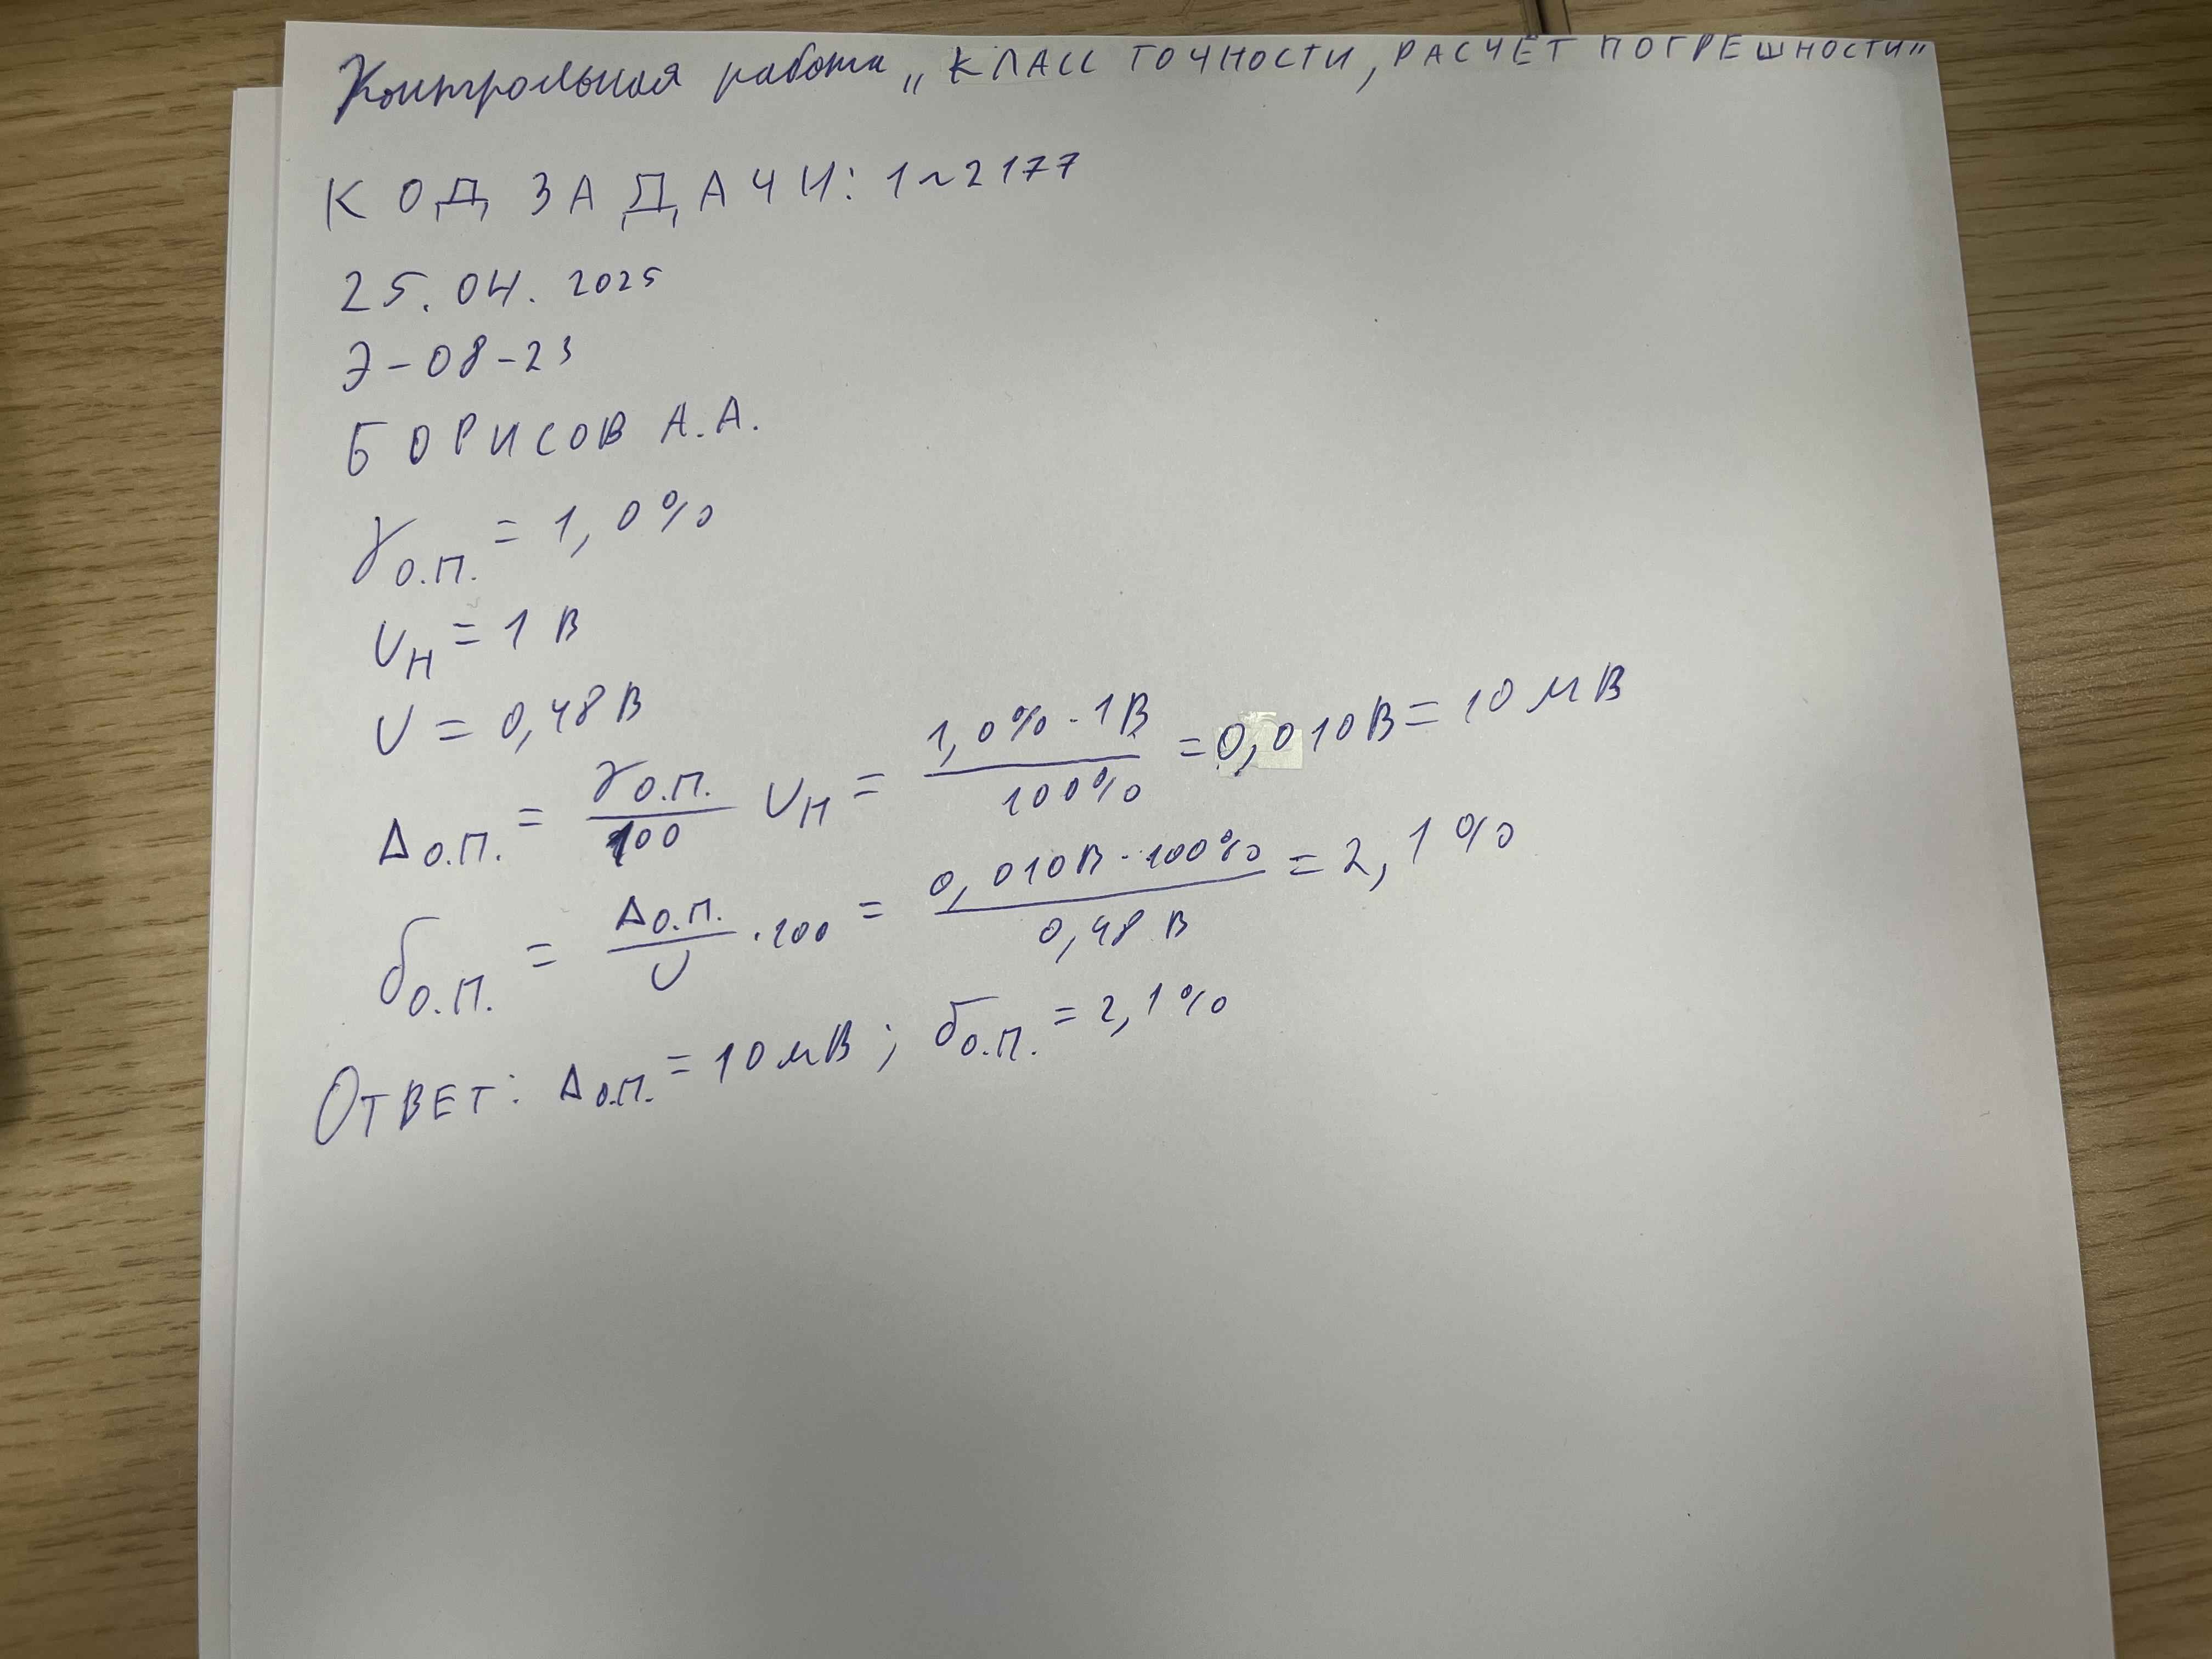 Контрольная работа „КЛАСС ТОЧНОСТИ, РАСЧЁТ ПОГРЕШНОСТИ"
КОД ЗАДАЧИ: 1~2177
25.04.2025
Э-08-23
БОРИСОВ А.А.
γо.п. = 1,0%
Uн = 1 В
U = 0,48 В
Δо.п. = γо.п./100 Uн = 1,0% · 1В/100% = 0,010В = 10 мВ
δо.п. = Δо.п./U · 100 = 0,010В · 100%/0,48 В = 2,1%
ОТВЕТ: Δо.п. = 10 мВ; δо.п. = 2,1%